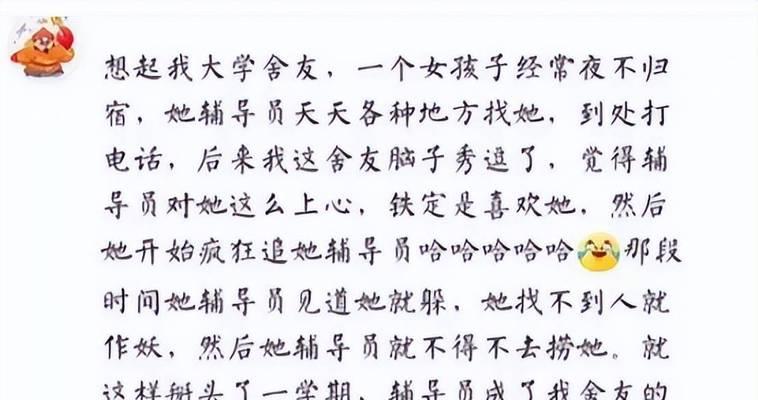 想起我大学舍友，一个女孩子经常夜不归
宿，她辅导员天天各种地方找她，到处打
电话，后来我这舍友脑子秀逗了，觉得辅
导员对她这么上心，铁定是喜欢她，然后
她开始疯狂追她辅导员哈哈哈哈哈😂那段
时间她辅导员见道她就躲，她找不到人就
作妖，然后她辅导员就不得不去捞她。就
这样掰头了一学期，辅导员成了我舍友的